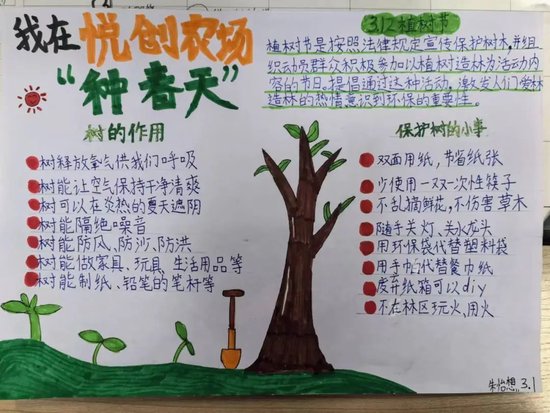 我在悦创农场
“种春天”
3.12植树节
植树节是按照法律规定宣传保护树木,并组
织动员群众积极参加以植树造林为活动内
容的节日。提倡通过这种活动,激发人们爱林
造林的热情意识到环保的重要性。
树的作用
树释放氧气供我们呼吸
树能让空气保持干净清爽
树可以在炎热的夏天遮阴
树能隔绝噪音
树能防风、防沙、防洪
树能做家具、玩具、生活用品等
树能制纸、铅笔的笔杆等
保护树的小事
双面用纸,节省纸张
少使用一双一次性筷子
不乱摘鲜花,不伤害草木
随手关灯、关水龙头
用环保袋代替塑料袋
用手帕代替餐巾纸
废弃纸箱可以diy
不在林区玩火、用火
朱怡想 3.1